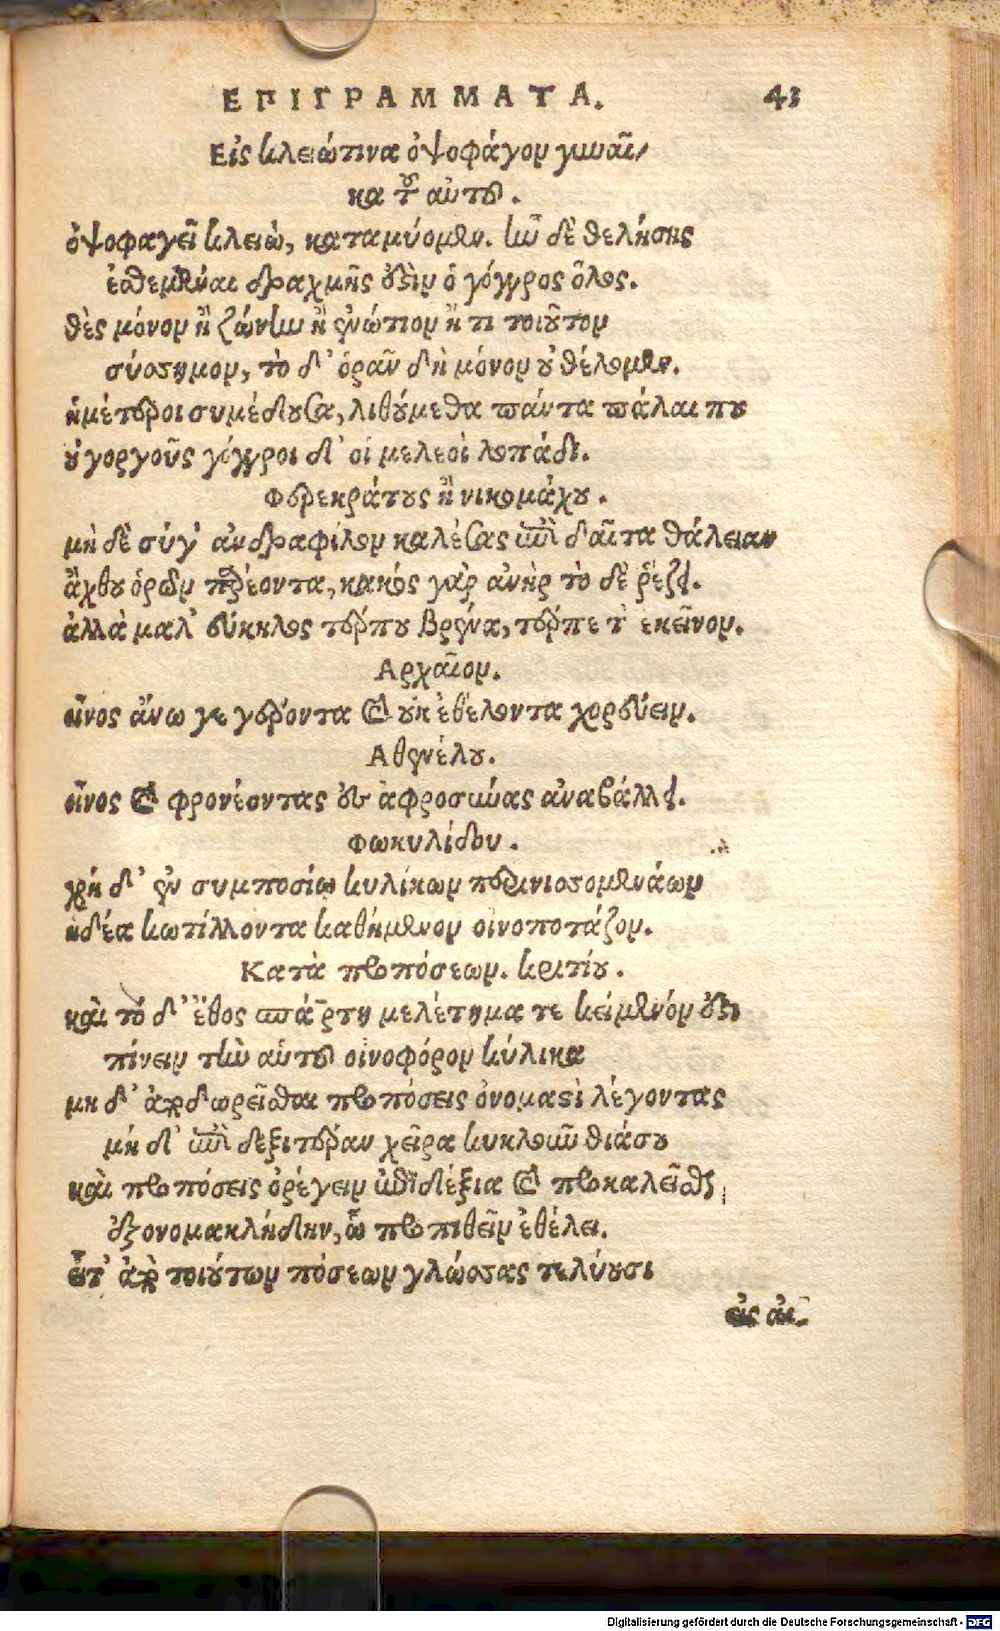 ΕΠΙΓΡΑΜΜΑΤΑ. 43
Εἰς κλειώ τινα ὀψοφάγον γυναῖ/
κα τοῦ αὐτοῦ.
ὀψοφαγεῖ κλειὼ, καταμύομεν. ἢν δὲ θελήσης
ἐσθεμέναι δραχμῆς ὅδιν ὁ γόγγρος ὅλος.
θὲς μόνον ἢ ζώνην ἢ ἐνώτιον ἤ τι τοιοῦτον
σύσσημον, τὸ δ' ὁρᾶν δὴ μόνον οὐ θέλομεν.
ἡμέτεροι συμέδουσα, λιθούμεθα πάντα πάλαι που
οὐ γοργοῦς γόγγροι δ' οἱ μελεοὶ λοπάδι.
Φερεκράτους ἢ νικομάχου.
μὴ δὲ σύγ' ἄνδρα φίλον καλέσας ἐπὶ δαῖτα θάλειαν
ἄχθου ὁρῶν παρέοντα, κακός γὰρ ἀνὴρ τὸ δὲ ῥέζει.
ἀλλὰ μαλ' εὔκηλος τέρπου φρένα, τέρπε τ' ἐκεῖνον.
Αρχαῖον.
οἶνος ἄνωγε γέροντα καὶ οὐκ ἐθέλοντα χορεύειν.
Αθηνέλου.
οἶνος καὶ φρονέοντας ἐς ἀφροσύνας ἀναβάλλει.
Φωκυλίδου.
χρὴ δ' ἐν συμποσίῳ κυλίκων περινισσομενάων
ἡδέα κωτίλλοντα καθήμενον οἰνοποτάζον.
Κατὰ προπόσεων. κριτίου.
καὶ τό δ' ἔθος σπάρτη μελέτημα τε κείμενόν ἐστι
πίνειν τὴν αὐτοῦ οἰνοφόρον κύλικα
μη δ' ἀποδωρεῖσθαι προπόσεις ὀνομαστὶ λέγοντας
μή δ' ἐπὶ δεξιτερὰν χεῖρα κυκλοῦν θιάσου
καὶ προπόσεις ὀρέγειν ἐπιδέξια καὶ προκαλεῖσθαι
ἐξονομακλήδην, ᾧ προπιθεῖν ἐθέλει.
εἶτ' ἀπὸ τοιούτων πόσεων γλώσσας τε λύουσι
εἰς αἰ
Digitalisierung gefördert durch die Deutsche Forschungsgemeinschaft - DFG